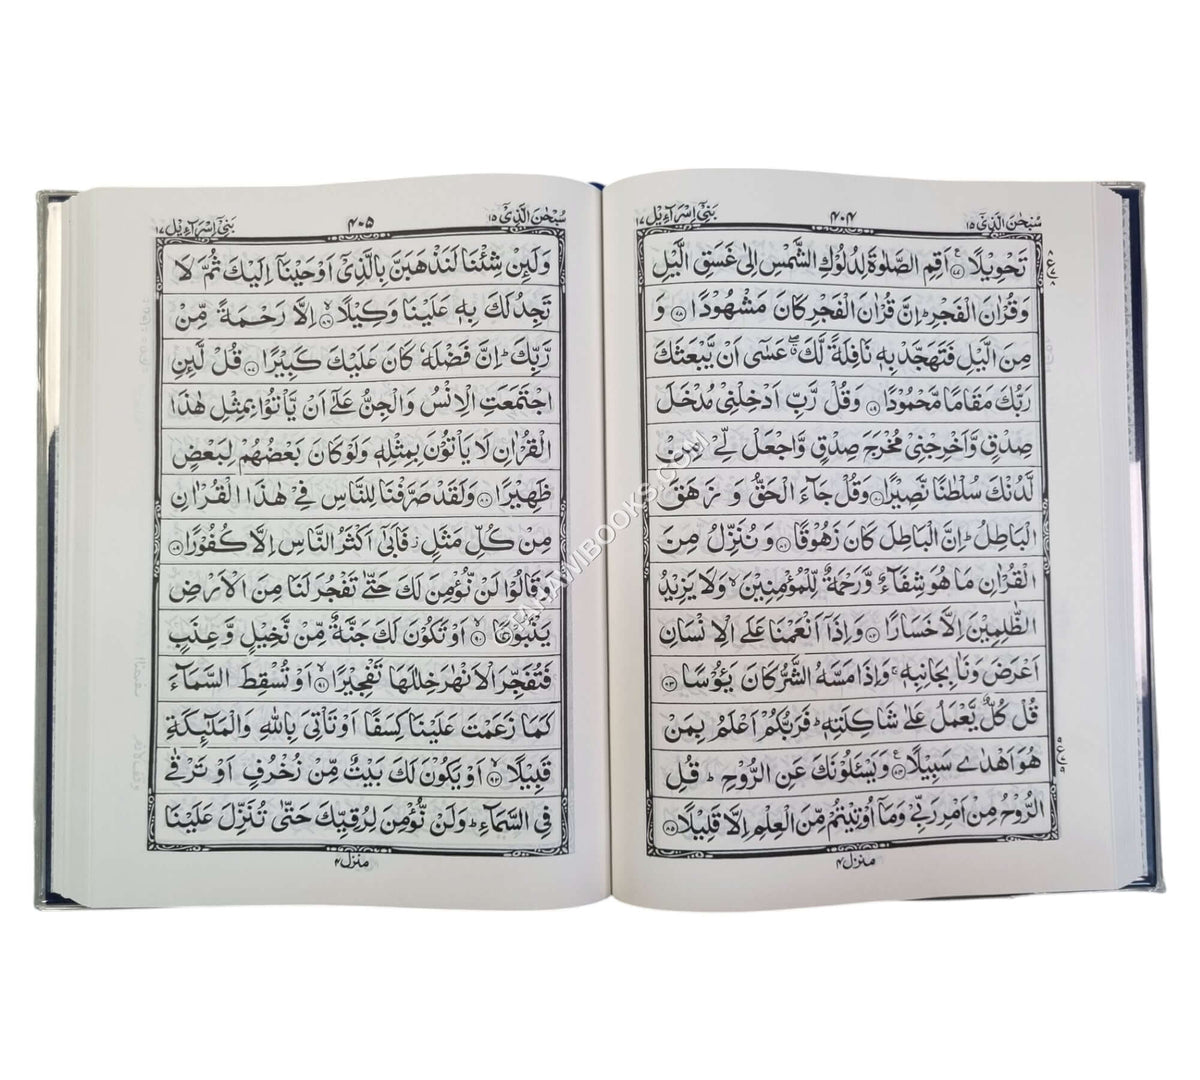 سُبْحٰنَ الَّذِیْٓ ۱۵
۴۰۴
بَنِیْٓ اِسْرَآءِیْل ۱۷
تَحْوِیْلًا ﴿۷۷﴾ اَقِمِ الصَّلٰوةَ لِدُلُوْكِ الشَّمْسِ اِلٰی غَسَقِ الَّیْلِ
وَقُرْاٰنَ الْفَجْرِ ؕ اِنَّ قُرْاٰنَ الْفَجْرِ كَانَ مَشْهُوْدًا ﴿۷۸﴾ وَ
مِنَ الَّیْلِ فَتَهَجَّدْ بِهٖ نَافِلَةً لَّكَ ۖ عَسٰۤی اَنْ یَّبْعَثَكَ
رَبُّكَ مَقَامًا مَّحْمُوْدًا ﴿۷۹﴾ وَقُلْ رَّبِّ اَدْخِلْنِیْ مُدْخَلَ
صِدْقٍ وَّاَخْرِجْنِیْ مُخْرَجَ صِدْقٍ وَّاجْعَلْ لِّیْ مِنْ
لَّدُنْكَ سُلْطٰنًا نَّصِیْرًا ﴿۸۰﴾ وَقُلْ جَآءَ الْحَقُّ وَ زَهَقَ
الْبَاطِلُ ؕ اِنَّ الْبَاطِلَ كَانَ زَهُوْقًا ﴿۸۱﴾ وَ نُنَزِّلُ مِنَ
الْقُرْاٰنِ مَا هُوَ شِفَآءٌ وَّرَحْمَةٌ لِّلْمُؤْمِنِیْنَ ۙ وَلَا یَزِیْدُ
الظّٰلِمِیْنَ اِلَّا خَسَارًا ﴿۸۲﴾ وَاِذَاۤ اَنْعَمْنَا عَلَی الْاِنْسَانِ
اَعْرَضَ وَنَاٰ بِجَانِبِهٖ ۚ وَاِذَا مَسَّهُ الشَّرُّ كَانَ یَـُٔوْسًا ﴿۸۳﴾
قُلْ كُلٌّ یَّعْمَلُ عَلٰی شَاكِلَتِهٖ ؕ فَرَبُّكُمْ اَعْلَمُ بِمَنْ
هُوَ اَهْدٰی سَبِیْلًا ﴿۸۴﴾ وَیَسْـَٔلُوْنَكَ عَنِ الرُّوْحِ ؕ قُلِ
الرُّوْحُ مِنْ اَمْرِ رَبِّیْ وَمَاۤ اُوْتِیْتُمْ مِّنَ الْعِلْمِ اِلَّا قَلِیْلًا ﴿۸۵﴾
منزل ۴
سُبْحٰنَ الَّذِیْٓ ۱۵
۴۰۵
بَنِیْٓ اِسْرَآءِیْل ۱۷
وَلَئِنْ شِئْنَا لَنَذْهَبَنَّ بِالَّذِیْۤ اَوْحَیْنَاۤ اِلَیْكَ ثُمَّ لَا
تَجِدُ لَكَ بِهٖ عَلَیْنَا وَكِیْلًا ﴿۸۶﴾ اِلَّا رَحْمَةً مِّنْ
رَّبِّكَ ؕ اِنَّ فَضْلَهٗ كَانَ عَلَیْكَ كَبِیْرًا ﴿۸۷﴾ قُلْ لَّئِنِ
اجْتَمَعَتِ الْاِنْسُ وَالْجِنُّ عَلٰۤی اَنْ یَّاْتُوْا بِمِثْلِ هٰذَا
الْقُرْاٰنِ لَا یَاْتُوْنَ بِمِثْلِهٖ وَلَوْ كَانَ بَعْضُهُمْ لِبَعْضٍ
ظَهِیْرًا ﴿۸۸﴾ وَلَقَدْ صَرَّفْنَا لِلنَّاسِ فِیْ هٰذَا الْقُرْاٰنِ
مِنْ كُلِّ مَثَلٍ ؗ فَاَبٰۤی اَكْثَرُ النَّاسِ اِلَّا كُفُوْرًا ﴿۸۹﴾
وَقَالُوْا لَنْ نُّؤْمِنَ لَكَ حَتّٰی تَفْجُرَ لَنَا مِنَ الْاَرْضِ
یَنْۢبُوْعًا ﴿۹۰﴾ اَوْ تَكُوْنَ لَكَ جَنَّةٌ مِّنْ نَّخِیْلٍ وَّعِنَبٍ
فَتُفَجِّرَ الْاَنْهٰرَ خِلٰلَهَا تَفْجِیْرًا ﴿۹۱﴾ اَوْ تُسْقِطَ السَّمَآءَ
كَمَا زَعَمْتَ عَلَیْنَا كِسَفًا اَوْ تَاْتِیَ بِاللّٰهِ وَالْمَلٰٓئِكَةِ
قَبِیْلًا ﴿۹۲﴾ اَوْ یَكُوْنَ لَكَ بَیْتٌ مِّنْ زُخْرُفٍ اَوْ تَرْقٰی
فِی السَّمَآءِ ؕ وَلَنْ نُّؤْمِنَ لِرُقِیِّكَ حَتّٰی تُنَزِّلَ عَلَیْنَا
منزل ۴